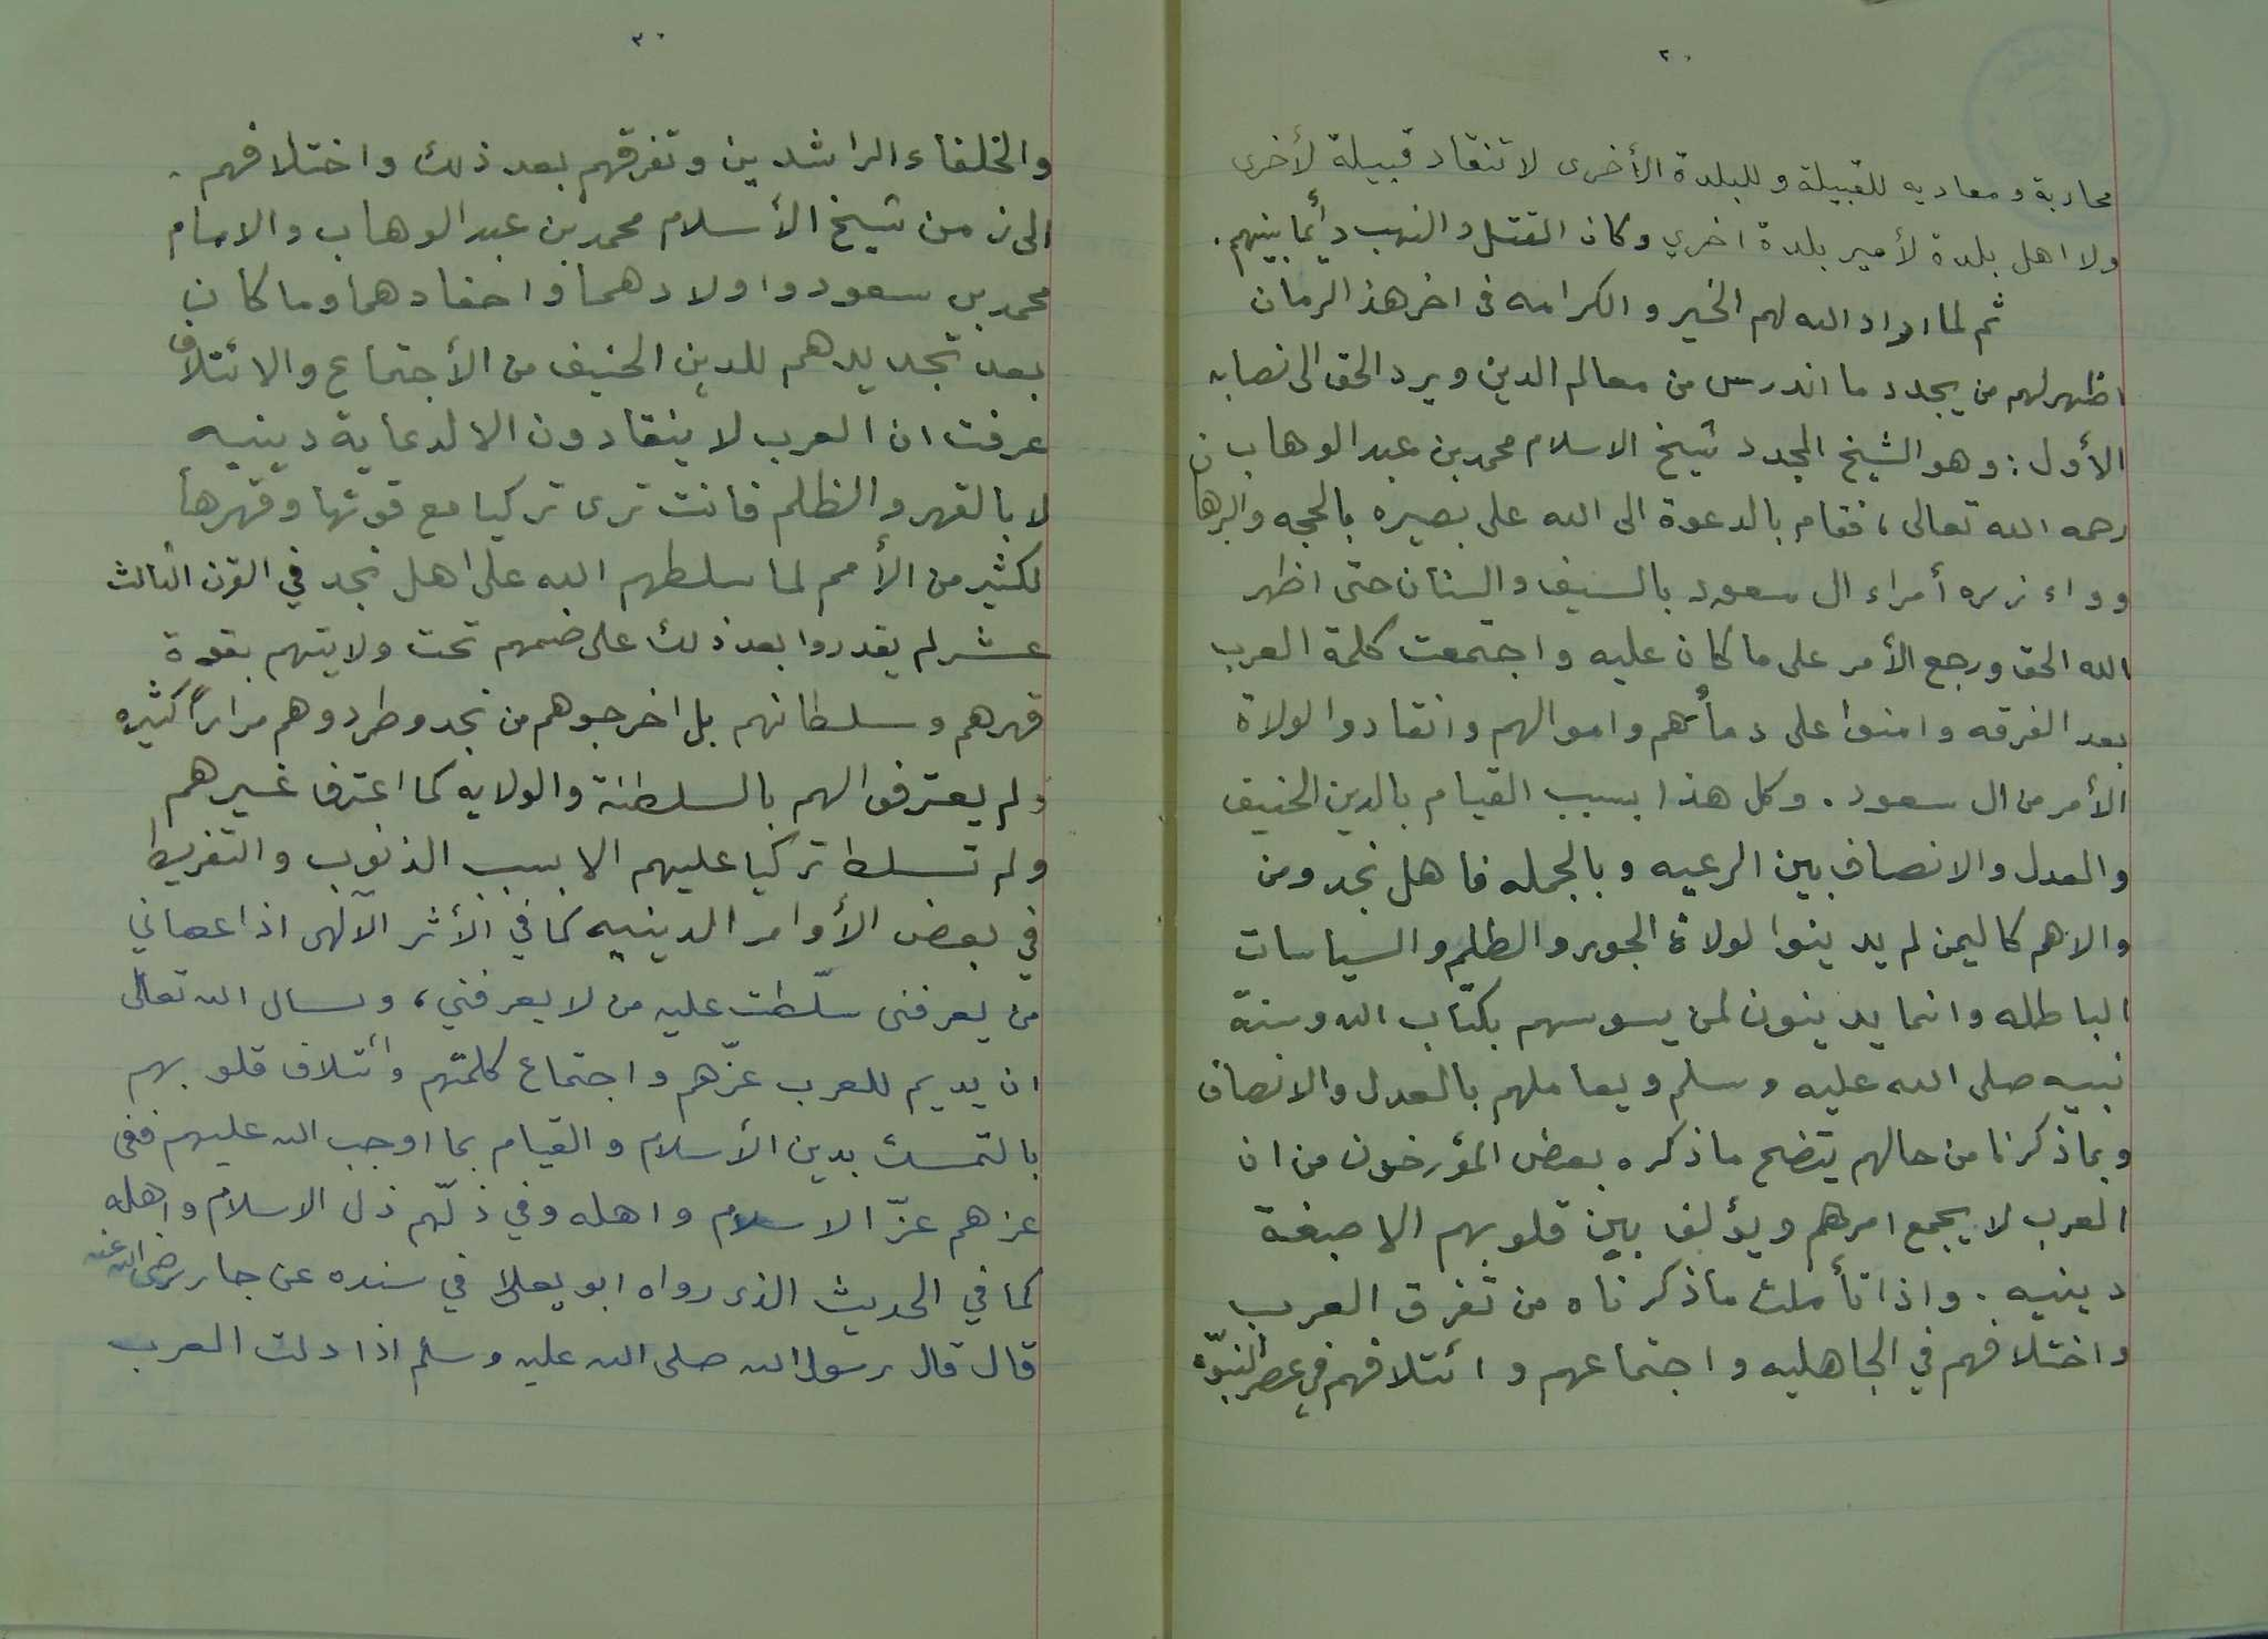 ٢٠
محاربة ومعاديه للقبيلة وللبلدة الأخرى لا تنقاد قبيلة لأخرى
ولا اهل بلدة لأمير بلدة اخرى وكان القتل والنهب دأئما بينهم.
ثم لما اراد الله لهم الخير والكرامه فى اخر هذ الزمان
اظهر لهم من يجدد ما اندرس من معالم الدين ويرد الحق الى نصابه
الأول : وهو الشيخ المجدد شيخ الاسلام محمد بن عبد الوهاب
رحمه الله تعالى ، فقام بالدعوة الى الله على بصيره بالحجه والبرهان
وواء زره أمراء ال سعود بالسيف والسنان حتى اظهر
الله الحق ورجع الأمر على ما كان عليه واجتمعت كلمة العرب
بعد الفرقه وامنوا على دمأئهم واموالهم وانقادوا لولاة
الأمر من ال سعود . وكل هذا بسبب القيام بالدين الحنيف
والعدل والانصاف بين الرعيه وبالجمله فاهل نجد ومن
والاهم كاليمن لم يدينوا لولاة الجور والظلم والسياسات
الباطله وانما يدينون لمن يسوسهم بكتاب الله وسنة
نبيه صلى الله عليه وسلم ويعاملهم بالعدل والانصاف
وبما ذكرنا من حالهم يتضح ما ذكره بعض المؤرخون من ان
العرب لا يجمع امرهم ويؤلف بين قلوبهم الا صبغة
دينيه . واذا تأملت ما ذكرناه من تفرق العرب
واختلافهم في الجاهليه واجتماعهم وائتلافهم في عصر النبوّة
٣٠
والخلفاء الراشدين وتفرقهم بعد ذلك واختلافهم .
الى زمن شيخ الأسلام محمد بن عبد الوهاب والامام
محمد بن سعود واولادهما واحفادهما وما كان
بعد تجديدهم للدين الحنيف من الأجتماع والائتلاف
عرفت ان العرب لا ينقادون الا لدعاية دينيه
لا بالقهر والظلم فانت ترى تركيا مع قوتها وقهرها
لكثير من الأمم لما سلطهم الله على اهل نجد في القرن الثالث
عشر لم يقدروا بعد ذلك على ضمهم تحت ولايتهم بقوة
قهرهم وسلطانهم بل اخرجوهم من نجد وطردوهم مراراً كثيره
ولم يعترفوا لهم بالسلطنة والولايه كما اعترف غيرهم
ولم تسلط تركيا عليهم الا بسبب الذنوب والتفريط
في بعض الأوامر الدينيه كما في الأثر الآلهى اذا عصاني
من يعرفنى سلّطت عليه من لا يعرفني ، ونسال الله تعالى
ان يديم للعرب عزّهم واجتماع كلمتهم وائتلاف قلوبهم
بالتمسك بدين الأسلام والقيام بما اوجب الله عليهم ففى
عزهم عزّ الاسلام واهله وفي ذلّهم ذل الاسلام واهله
كما في الحديث الذى رواه ابو يعلا في سنده عن جابر رضى الله عنه
قال قال رسول الله صلى الله عليه وسلم اذا دلت العرب